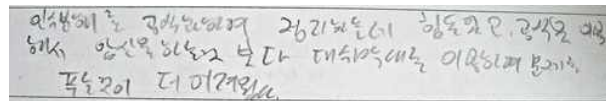 인수분해를 공식화하여 정리하는데 힘들었고, 공식을 이용
해서 암산을 하는것 보다 대수막대를 이용하여 문제를
푸는것이 더 어려웠다.